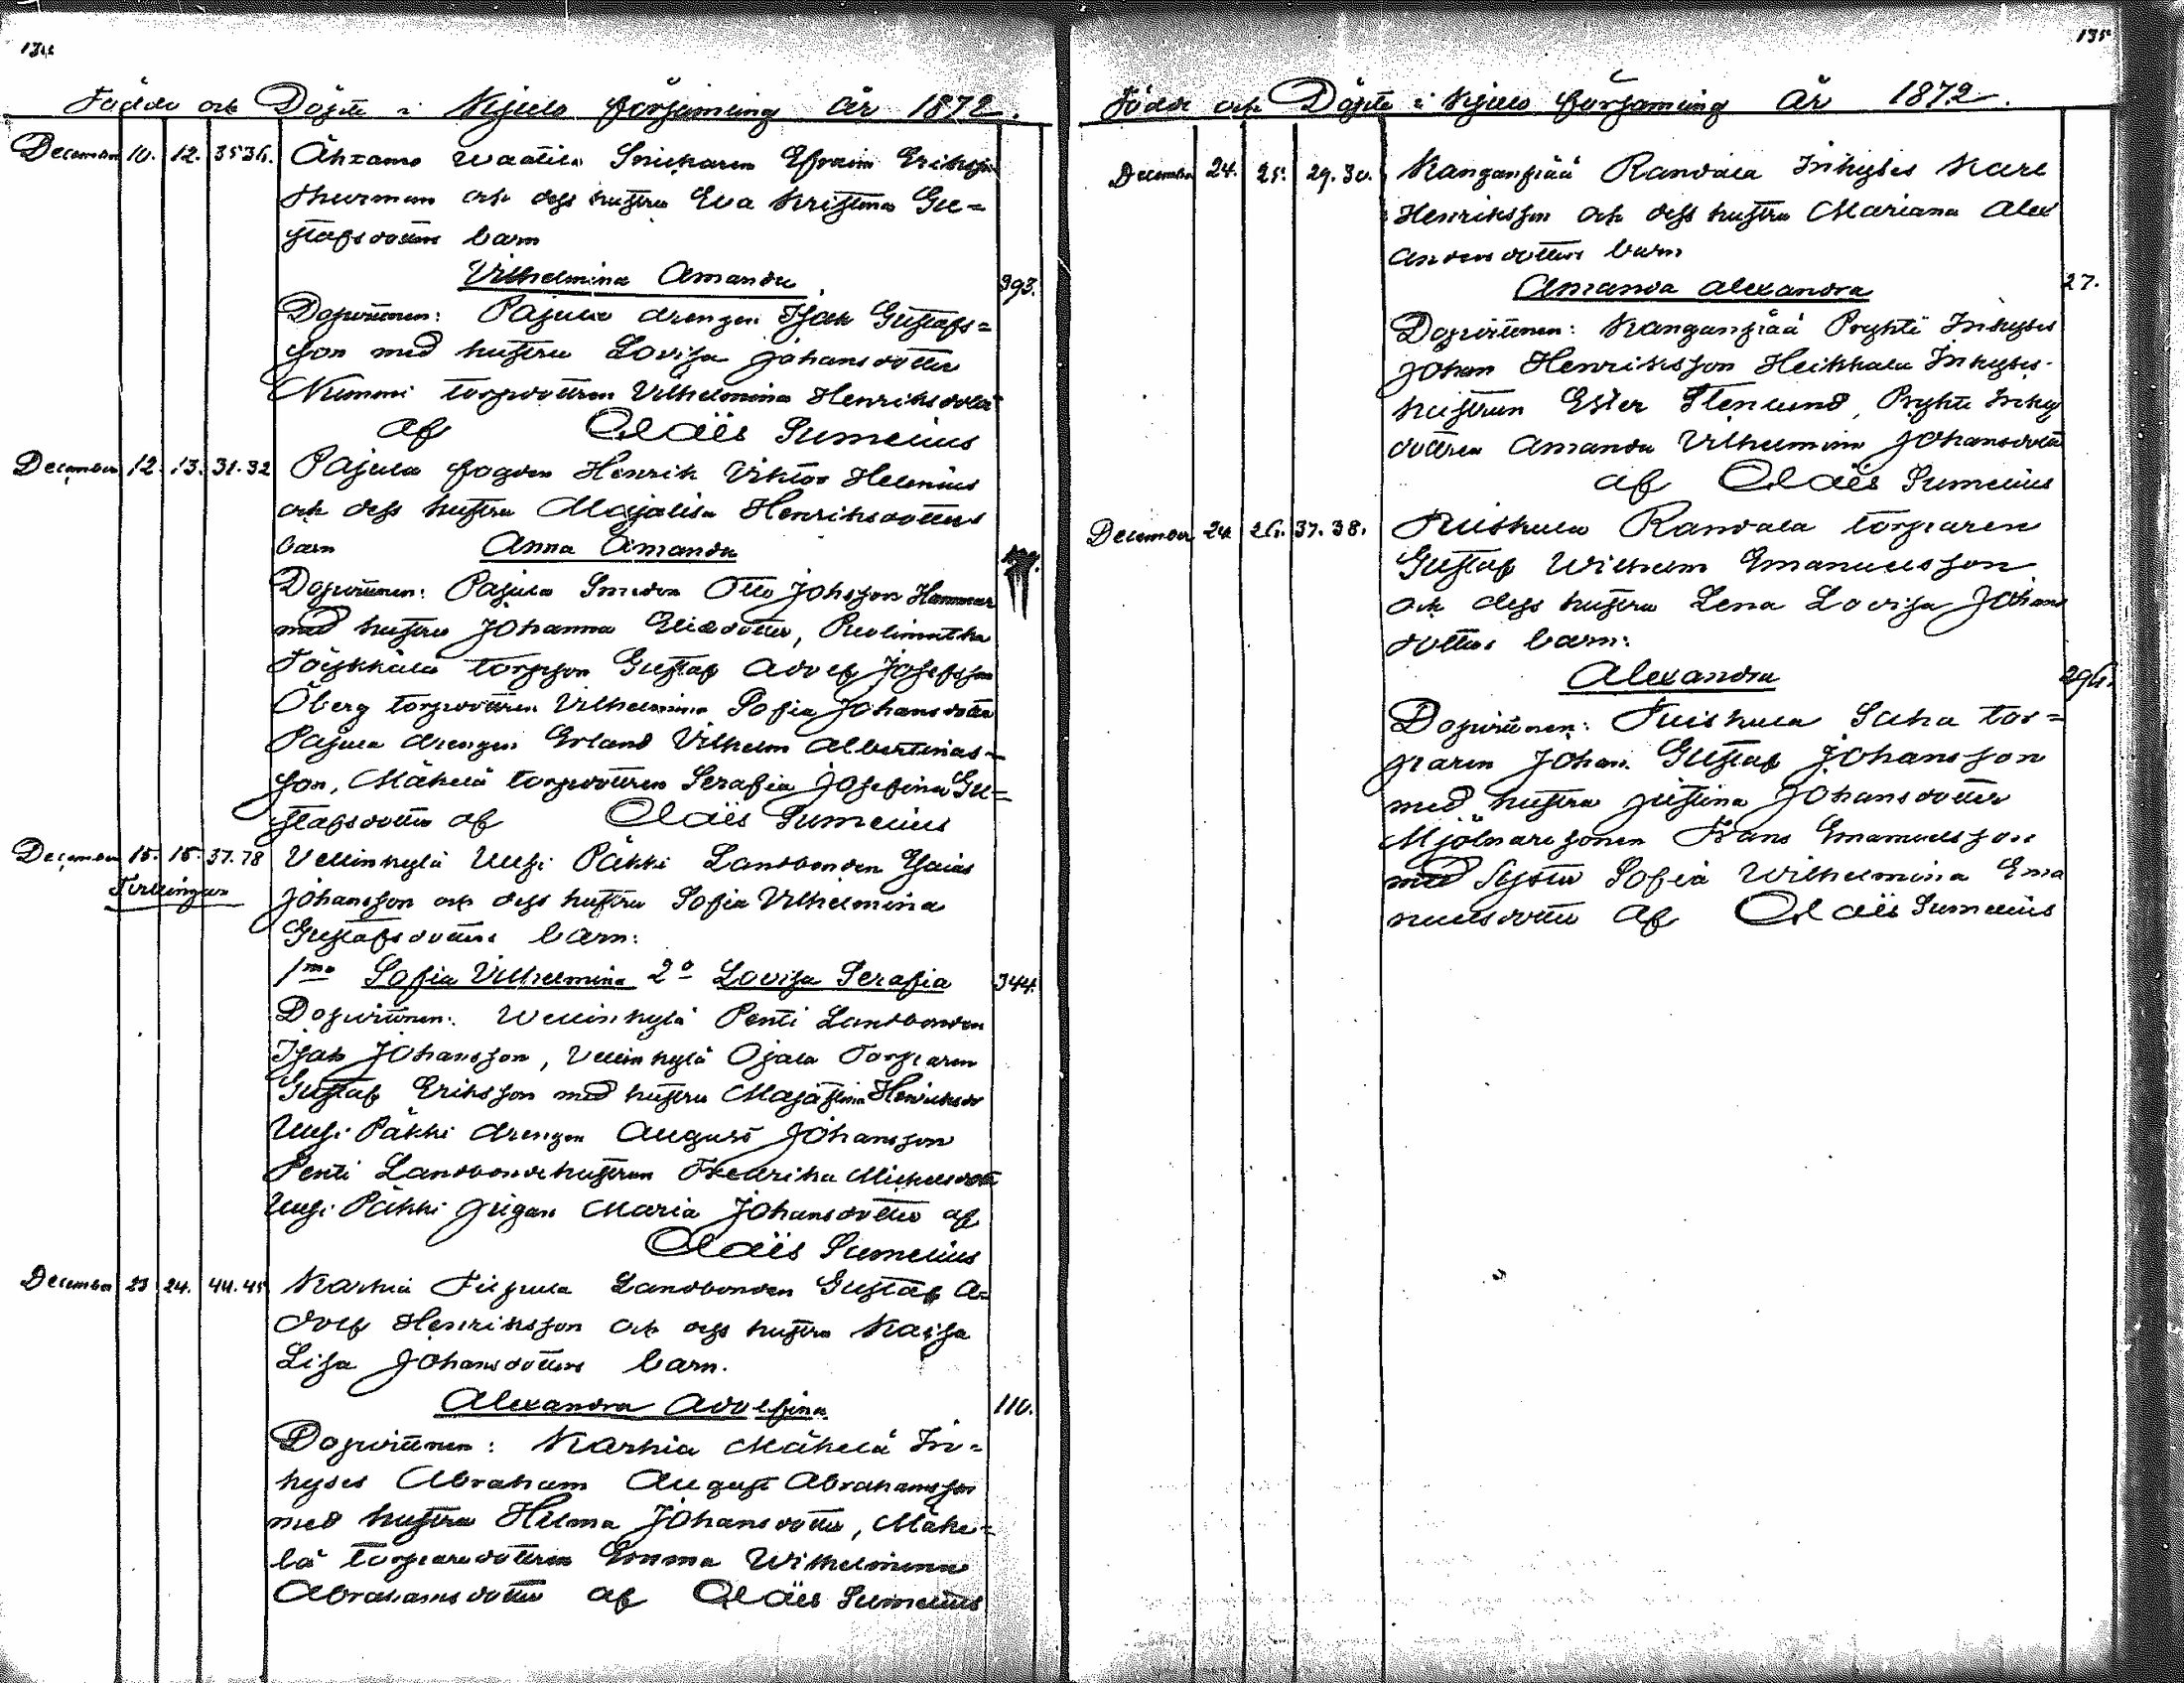 134
Födde och Döpte i Kjulo församling år 1872.
December 10. 12. 35 36. Åhxamo Waatila Snickaren Efraim Eriksson
Thurman och dess hustru Eva Kristina Gu=
stafsdotters barn
Vilhelmina Amanda 393.
Dopvittnen: Pajula drengen Isak Gustafs=
son med hustru Lovisa Johansdotter
Nummi torpdottren Vilhelmina Henriksdotter
af Claës Sumelius
December 12. 13. 31. 32 Pajula fogden Henrik Viktor Helenius
och dess hustru Majalisa Henriksdotters
barn Anna Amanda
Dopvittnen: Pajula Smeden Otto Johsson Hammar
med hustru Johanna Eliedotter,
Töykkälä torpson Gustaf Adolf Josefsson
Öberg torpdottren Vilhelmina Sofia Johansdotter
Pajula drengen Erland Vilhelm Albertinas=
son, Mäkelä torpdottren Serafia Josefina Gu=
stafsdotter af Claës Sumelius
December 15. 15. 37. 78 Vellinkylä Uusi Päkki Landbonden Esaias
Tvillingar Johansson och dess hustru Sofia Vilhelmina
Gustafsdotters barn:
1mo Sofia Vilhelmina 2o Lovisa Serafia 344.
Dopvittnen: Wellinkylä Penti Landbonden
Isak Johansson, Vellinkylä Ojala Torparen
Gustaf Eriksson med hustru Majastina Henriksdr
Uusi Päkki drengen August Johansson
Penti Landbondehustrun Fredrika Michelsdotter
Uusi Päkki pigan Maria Johansdotter af
Claës Sumelius
December 23 24. 44. 45 Karhia Filpula Landbonden Gustaf A=
dolf Henriksson och dess hustru Kaisa
Lisa Johansdotters barn.
Alexandra Adolfina 110.
Dopvittnen: Karhia Mäkelä In=
hyses Abraham August Abrahamsson
med hustru Hilma Johansdotter, Mäke=
lä torparedottren Emma Wilhelmina
Abrahamsdotter af Claës Sumelius
135
Födde och Döpte i Kjulo församling År 1872.
December 24. 25. 29. 30. Kanganpää Randala Inhyses Karl
Henriksson och dess hustru Mariana Alex
andersdotters barn
Amanda Alexandra 27.
Dopvittnen: Kanganpää Pryhti Inhyses
Johan Henriksson Heikkala Inhyses
hustrun Ester Stenlund, Pryhti Inhy
dottren Amanda Vilhelmina Johansdotter
af Claës Sumelius
December 24 26. 37. 38. Tuiskula Randala torparen
Gustaf Wilhelm Emanuelsson
och dess hustru Lena Lovisa Johans
dotters barn:
Alexandra 296.
Dopvittnen: Tuiskula Saha tor=
paren Johan Gustaf Johansson
med hustru Justina Johansdotter
Mjölnaresonen Frans Emanuelsson
med Syster Sofia Wilhelmina Ema
nuelsdotter af Claës Sumelius